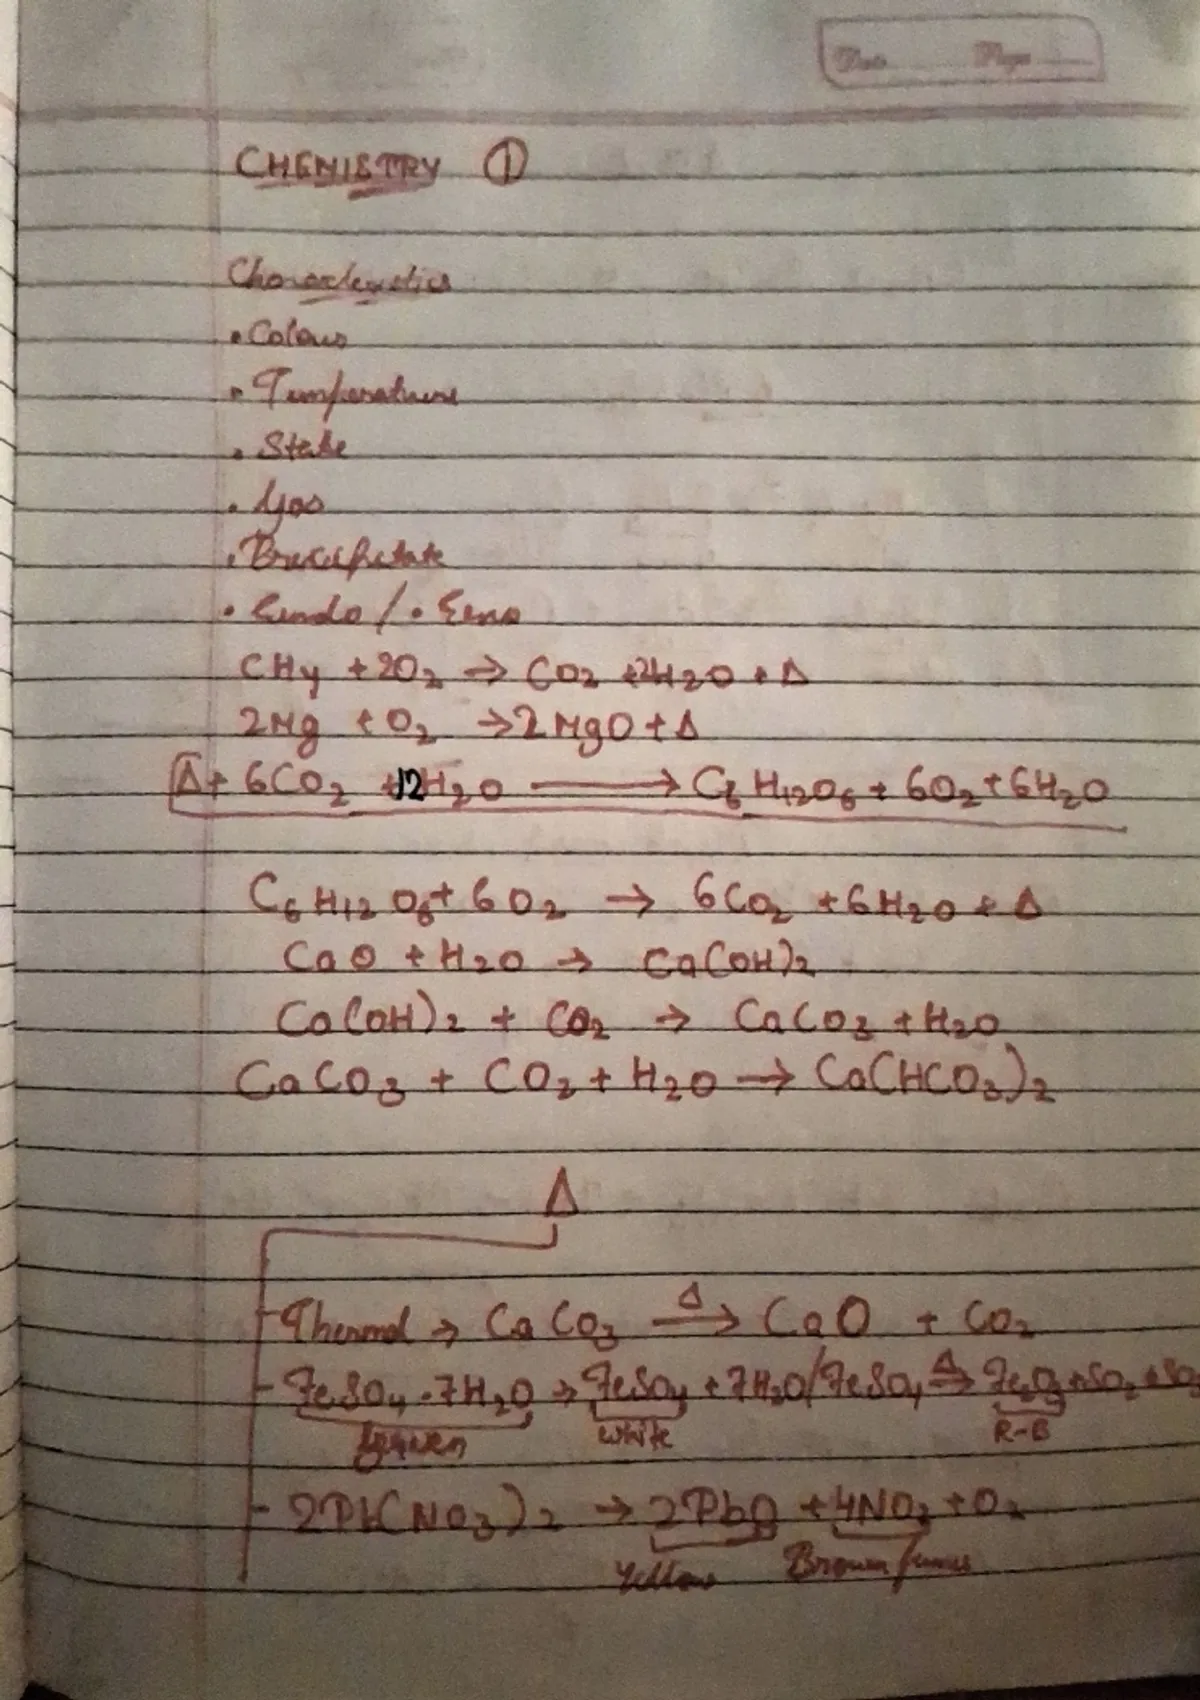 Date Page
CHEMISTRY ①
Characteristics
• Colour
• Temperature
• State
• Gas
• Precipitate
• Endo / • Exo
CH4 + 2O2 → CO2 + 2H2O + Δ
2Mg + O2 → 2MgO + Δ
Δ + 6CO2 + 12H2O → C6H12O6 + 6O2 + 6H2O
C6H12O6 + 6O2 → 6CO2 + 6H2O + Δ
CaO + H2O → Ca(OH)2
Ca(OH)2 + CO2 → CaCO3 + H2O
CaCO3 + CO2 + H2O → Ca(HCO3)2
Δ
Thermal → CaCO3 Δ→ CaO + CO2
- FeSO4·7H2O → FeSO4 + 7H2O / FeSO4 Δ→ Fe2O3 + SO2 +
green white R-B
- 2Pb(NO3)2 → 2PbO + 4NO2 + O2
Yellow Brown fumes